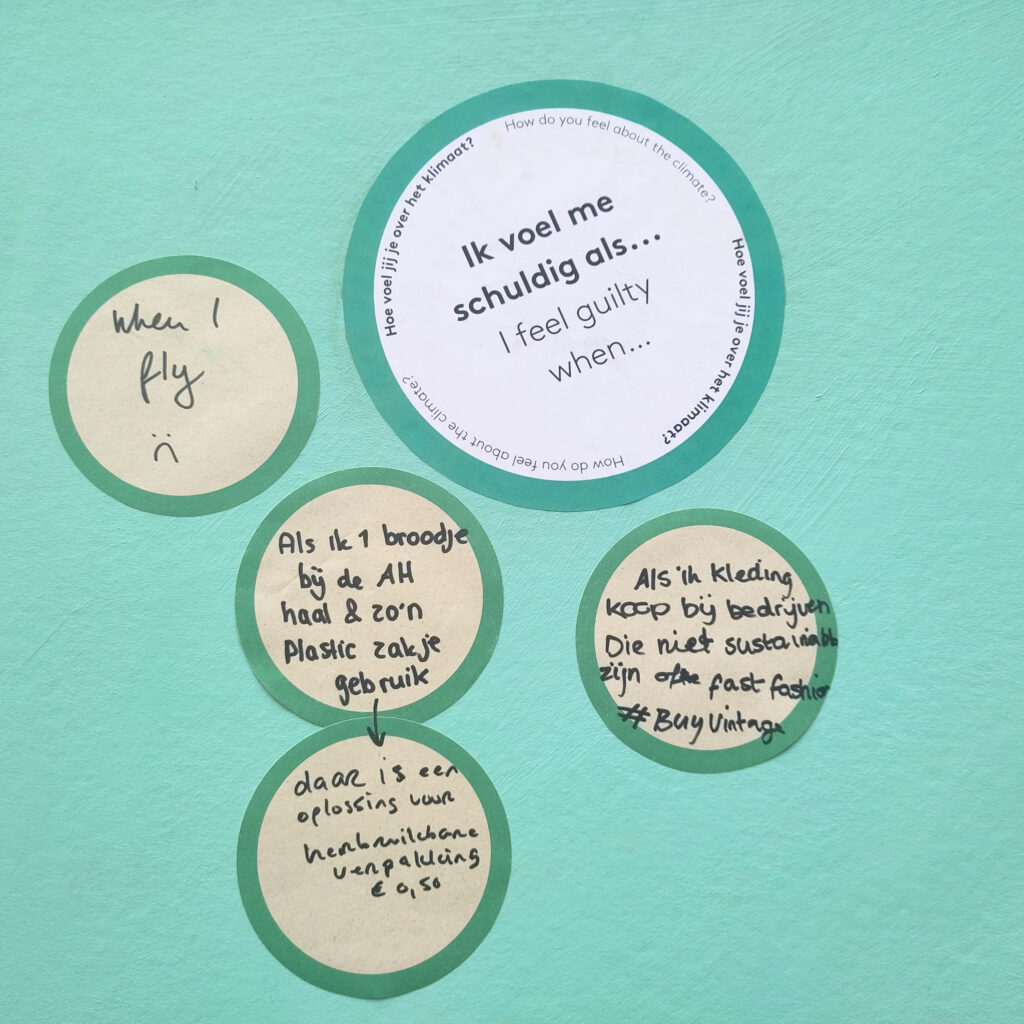 How do you feel about the climate?
Hoe voel jij je over het klimaat?
Ik voel me
schuldig als...
I feel guilty
when...
Hoe voel jij je over het klimaat?
How do you feel about the climate?
when I
fly
:(
Als ik 1 broodje
bij de AH
haal & zo'n
Plastic zakje
gebruik
daar is een
oplossing voor
herbruikbare
verpakking
€ 0,50
Als ik kleding
koop bij bedrijven
Die niet sustainable
zijn fast fashion
#Buy Vintage